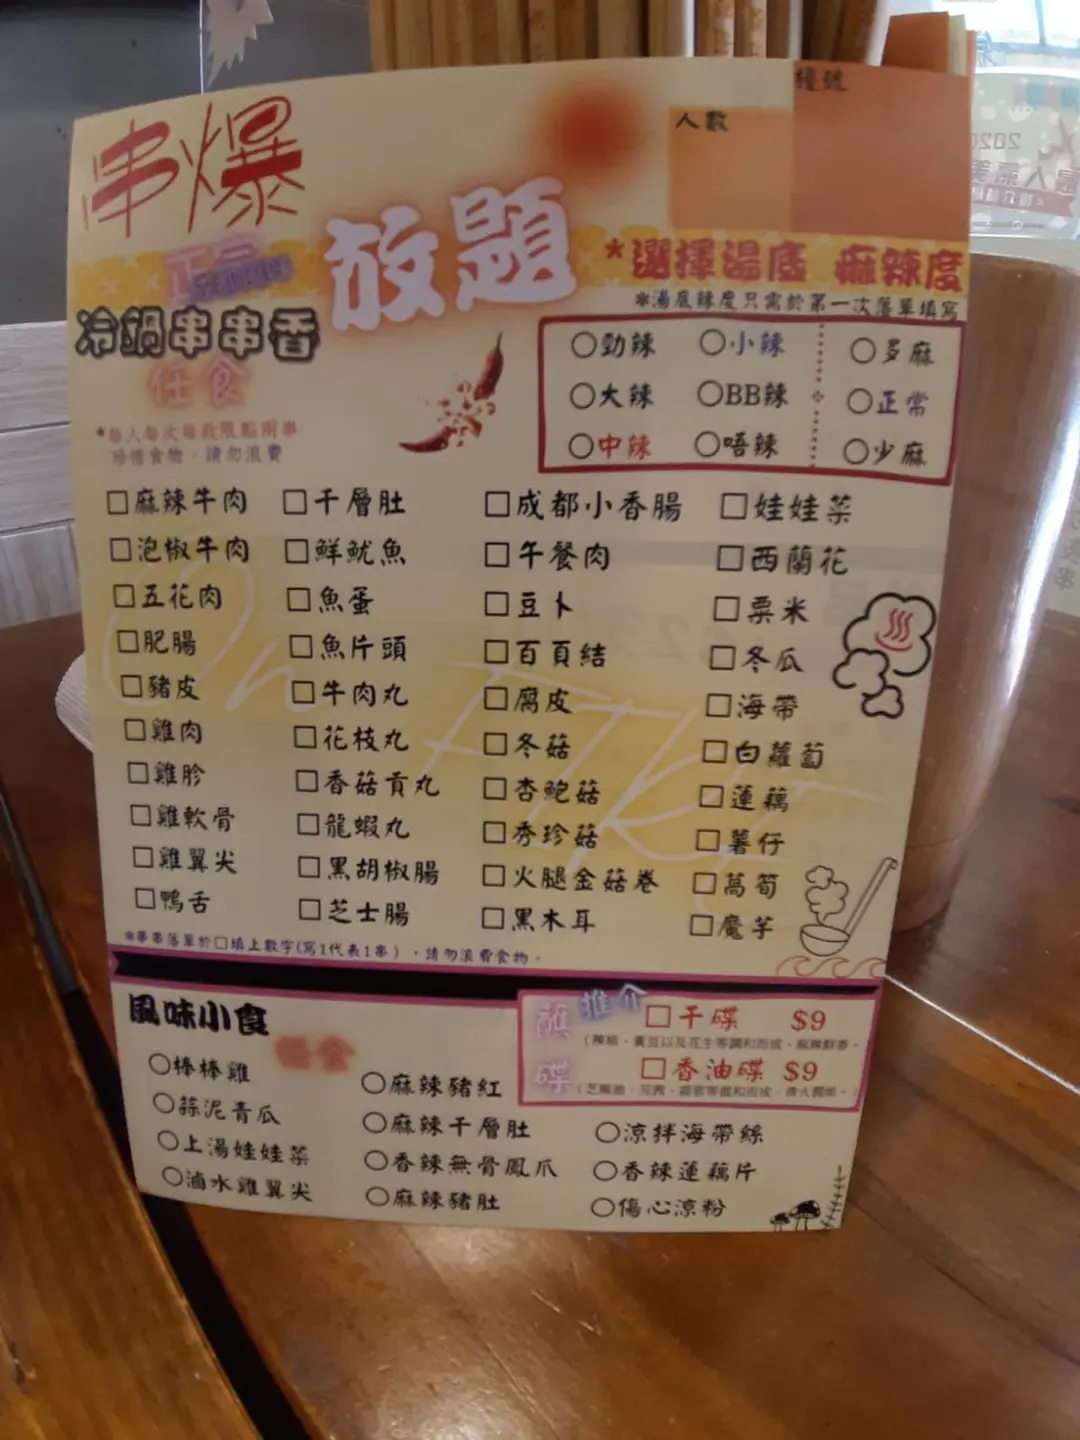 檯號
人數
串爆
放題
正宗
冷鍋串串香
任食
*每人每次每款限點兩串
珍惜食物，請勿浪費
*選擇湯底 麻辣度
*湯底辣度只需於第一次落單填寫
○勁辣 ○小辣 ○多麻
○大辣 ○BB辣 ○正常
○中辣 ○唔辣 ○少麻
□麻辣牛肉 □千層肚 □成都小香腸 □娃娃菜
□泡椒牛肉 □鮮魷魚 □午餐肉 □西蘭花
□五花肉 □魚蛋 □豆卜 □粟米
□肥腸 □魚片頭 □百頁結 □冬瓜
□豬皮 □牛肉丸 □腐皮 □海帶
□雞肉 □花枝丸 □冬菇 □白蘿蔔
□雞胗 □香菇貢丸 □杏鮑菇 □蓮藕
□雞軟骨 □龍蝦丸 □秀珍菇 □薯仔
□雞翼尖 □黑胡椒腸 □火腿金菇卷 □萵筍
□鴨舌 □芝士腸 □黑木耳 □魔芋
*串串落單於□填上數字(寫1代表1串)，請勿浪費食物。
風味小食
任食
○棒棒雞
○蒜泥青瓜
○上湯娃娃菜
○滷水雞翼尖
○麻辣豬紅
○麻辣千層肚
○香辣無骨鳳爪
○麻辣豬肚
推介
蘸碟
□干碟 $9
(辣椒、黃豆以及花生等調和而成、麻辣鮮香。
□香油碟 $9
○涼拌海帶絲
○香辣蓮藕片
○傷心涼粉